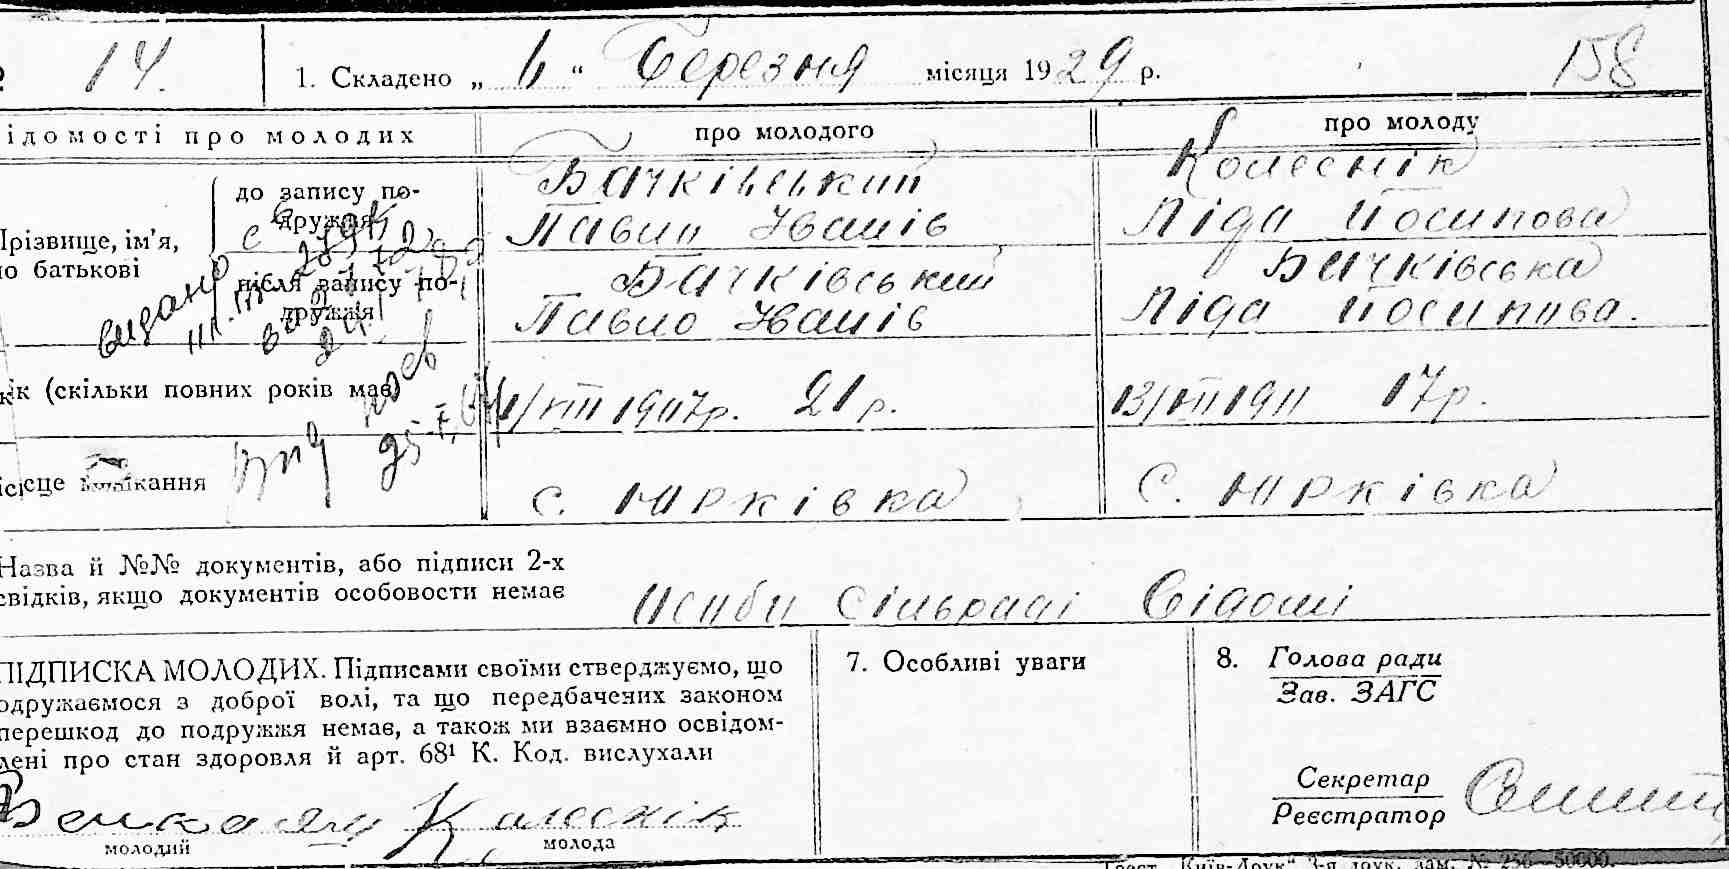 14. 1. Складено „ 6 “ Березня місяця 1929 р. 158
ідомості про молодих про молодого про молоду
до запису по-
дружжя
Бачківський
Павло Іванів
Колеснік
Ліда Йосипова
Прізвище, ім’я,
по батькові
після запису по-
дружжя
Бачківський
Павло Іванів
Бачківська
Ліда Йосипова.
видано
ік (скільки повних років має)
1/VIII 1907р. 21 р.
13/VII 1911 17р.
ісце мешкання
с. Юрківка
с. Юрківка
Назва й №№ документів, або підписи 2-х
свідків, якщо документів особовости немає
Особи сільраді Відомі
ПІДПИСКА МОЛОДИХ. Підписами своїми стверджуємо, що
одружаємося з доброї волі, та що передбачених законом
перешкод до подружжя немає, а також ми взаємно освідом-
лені про стан здоровля й арт. 68¹ К. Код. вислухали
Колеснік
молодий молода
7. Особливі уваги
8. Голова ради
Зав. ЗАГС
Секретар
Реєстратор
Трест „Київ-Друк“ 3-я друк. зам. № 256—50000.